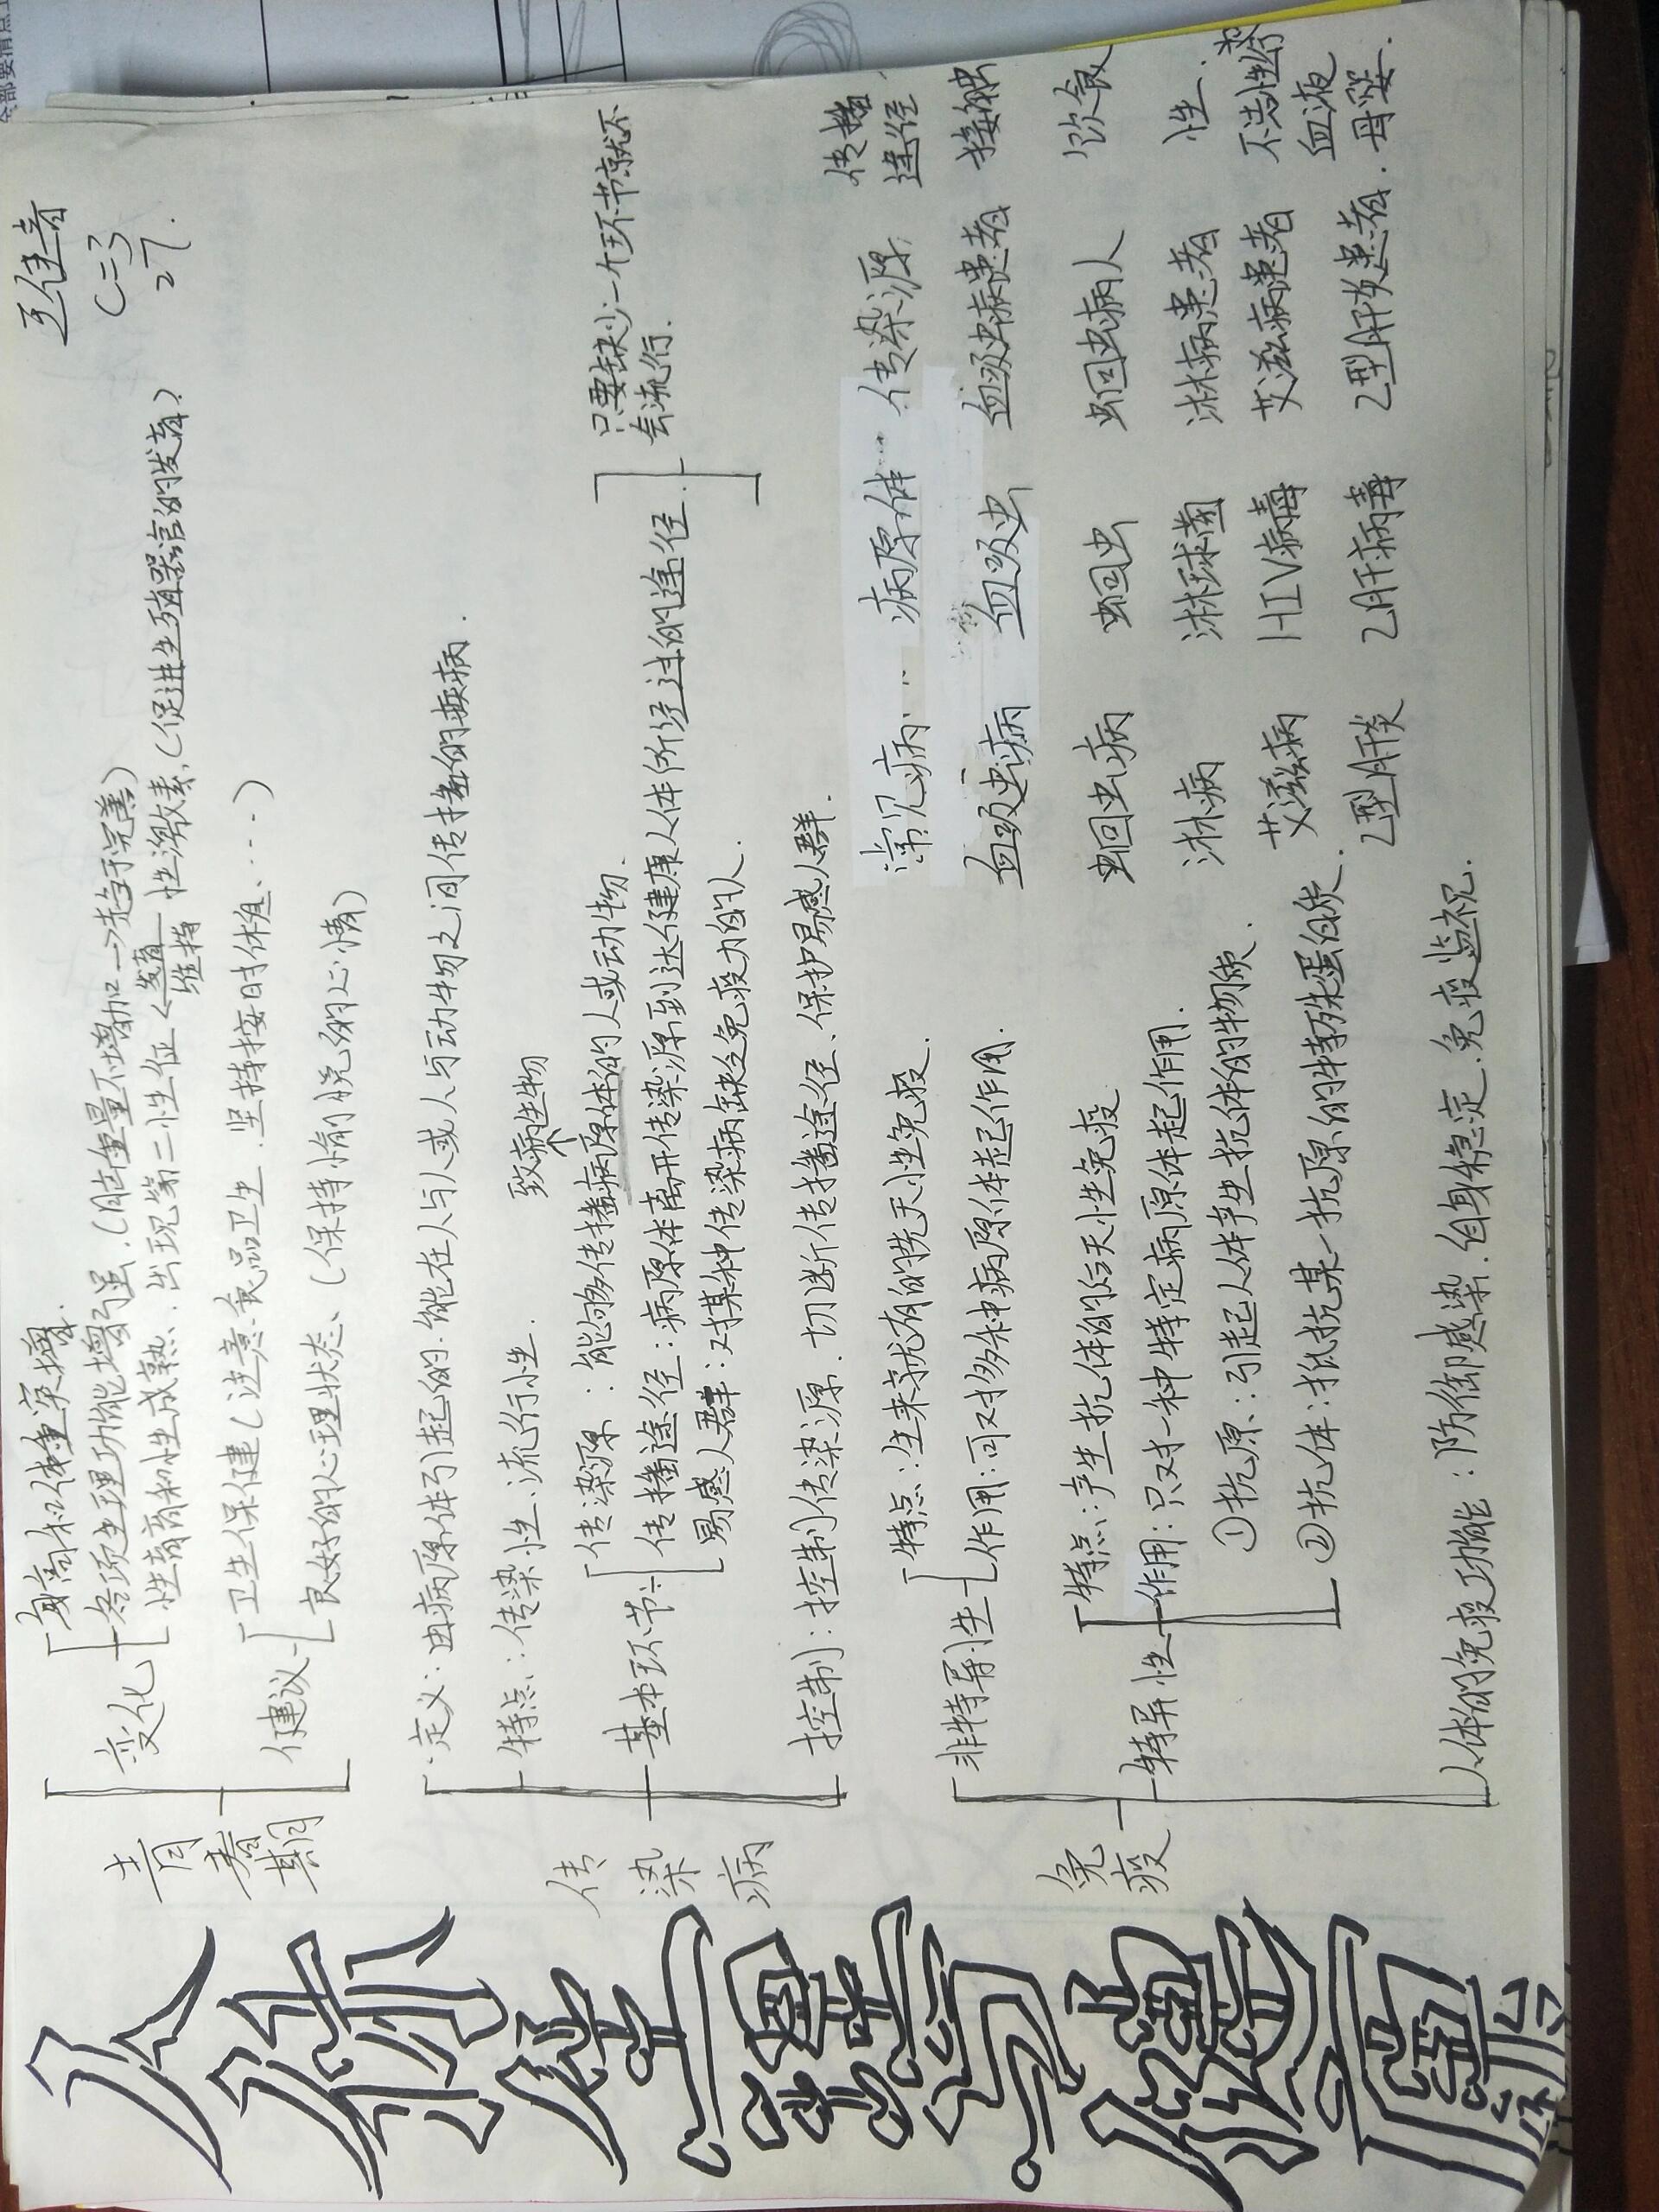 (二)
27.
青春期
变化
身高和体重突增.
各项生理功能增强.(脑重量不增加→趋于完善)
性育和性成熟、出现第二性位<发育 维持 性激素.(促进生殖器官的发育)
建议
卫生保健(注意食品卫生.坚持按时休息、……)
良好的心理状态、(保持愉悦的心情)
传染病
定义:由病原体引起的.能在人与人或人与动物之间传播的疾病.
特点:传染性.流行性.
致病生物
基本环节:
传染源:能够传播病原体的人或动物.
传播途径:病原体离开传染源到达健康人体所经过的途径.
易感人群:对某种传染病缺乏免疫力的人.
只要缺少一个环节就不
会流行.
控制:控制传染源.切断传播途径、保护易感人群.
免疫
非特异性
特点:生来就有的先天性免疫.
作用:可对多种病原体起作用.
特异性
特点:产生抗体的后天性免疫
作用:只对一种特定病原体起作用.
①抗原:引起人体产生抗体的物质.
②抗体:抵抗某一抗原的特殊蛋白质.
人体的免疫功能:防御感染.自身稳定.免疫监视.
常见病 病原体 传染源 传播途径
血吸虫病 血吸虫 血吸虫病患者 接触
蛔虫病 蛔虫 蛔虫病人 饮食
淋病 淋球菌 淋病患者 性.
艾滋病 HIV病毒 艾滋病患者 不洁性
乙型肝炎 乙肝病毒 乙型肝炎患者. 血液 母婴.